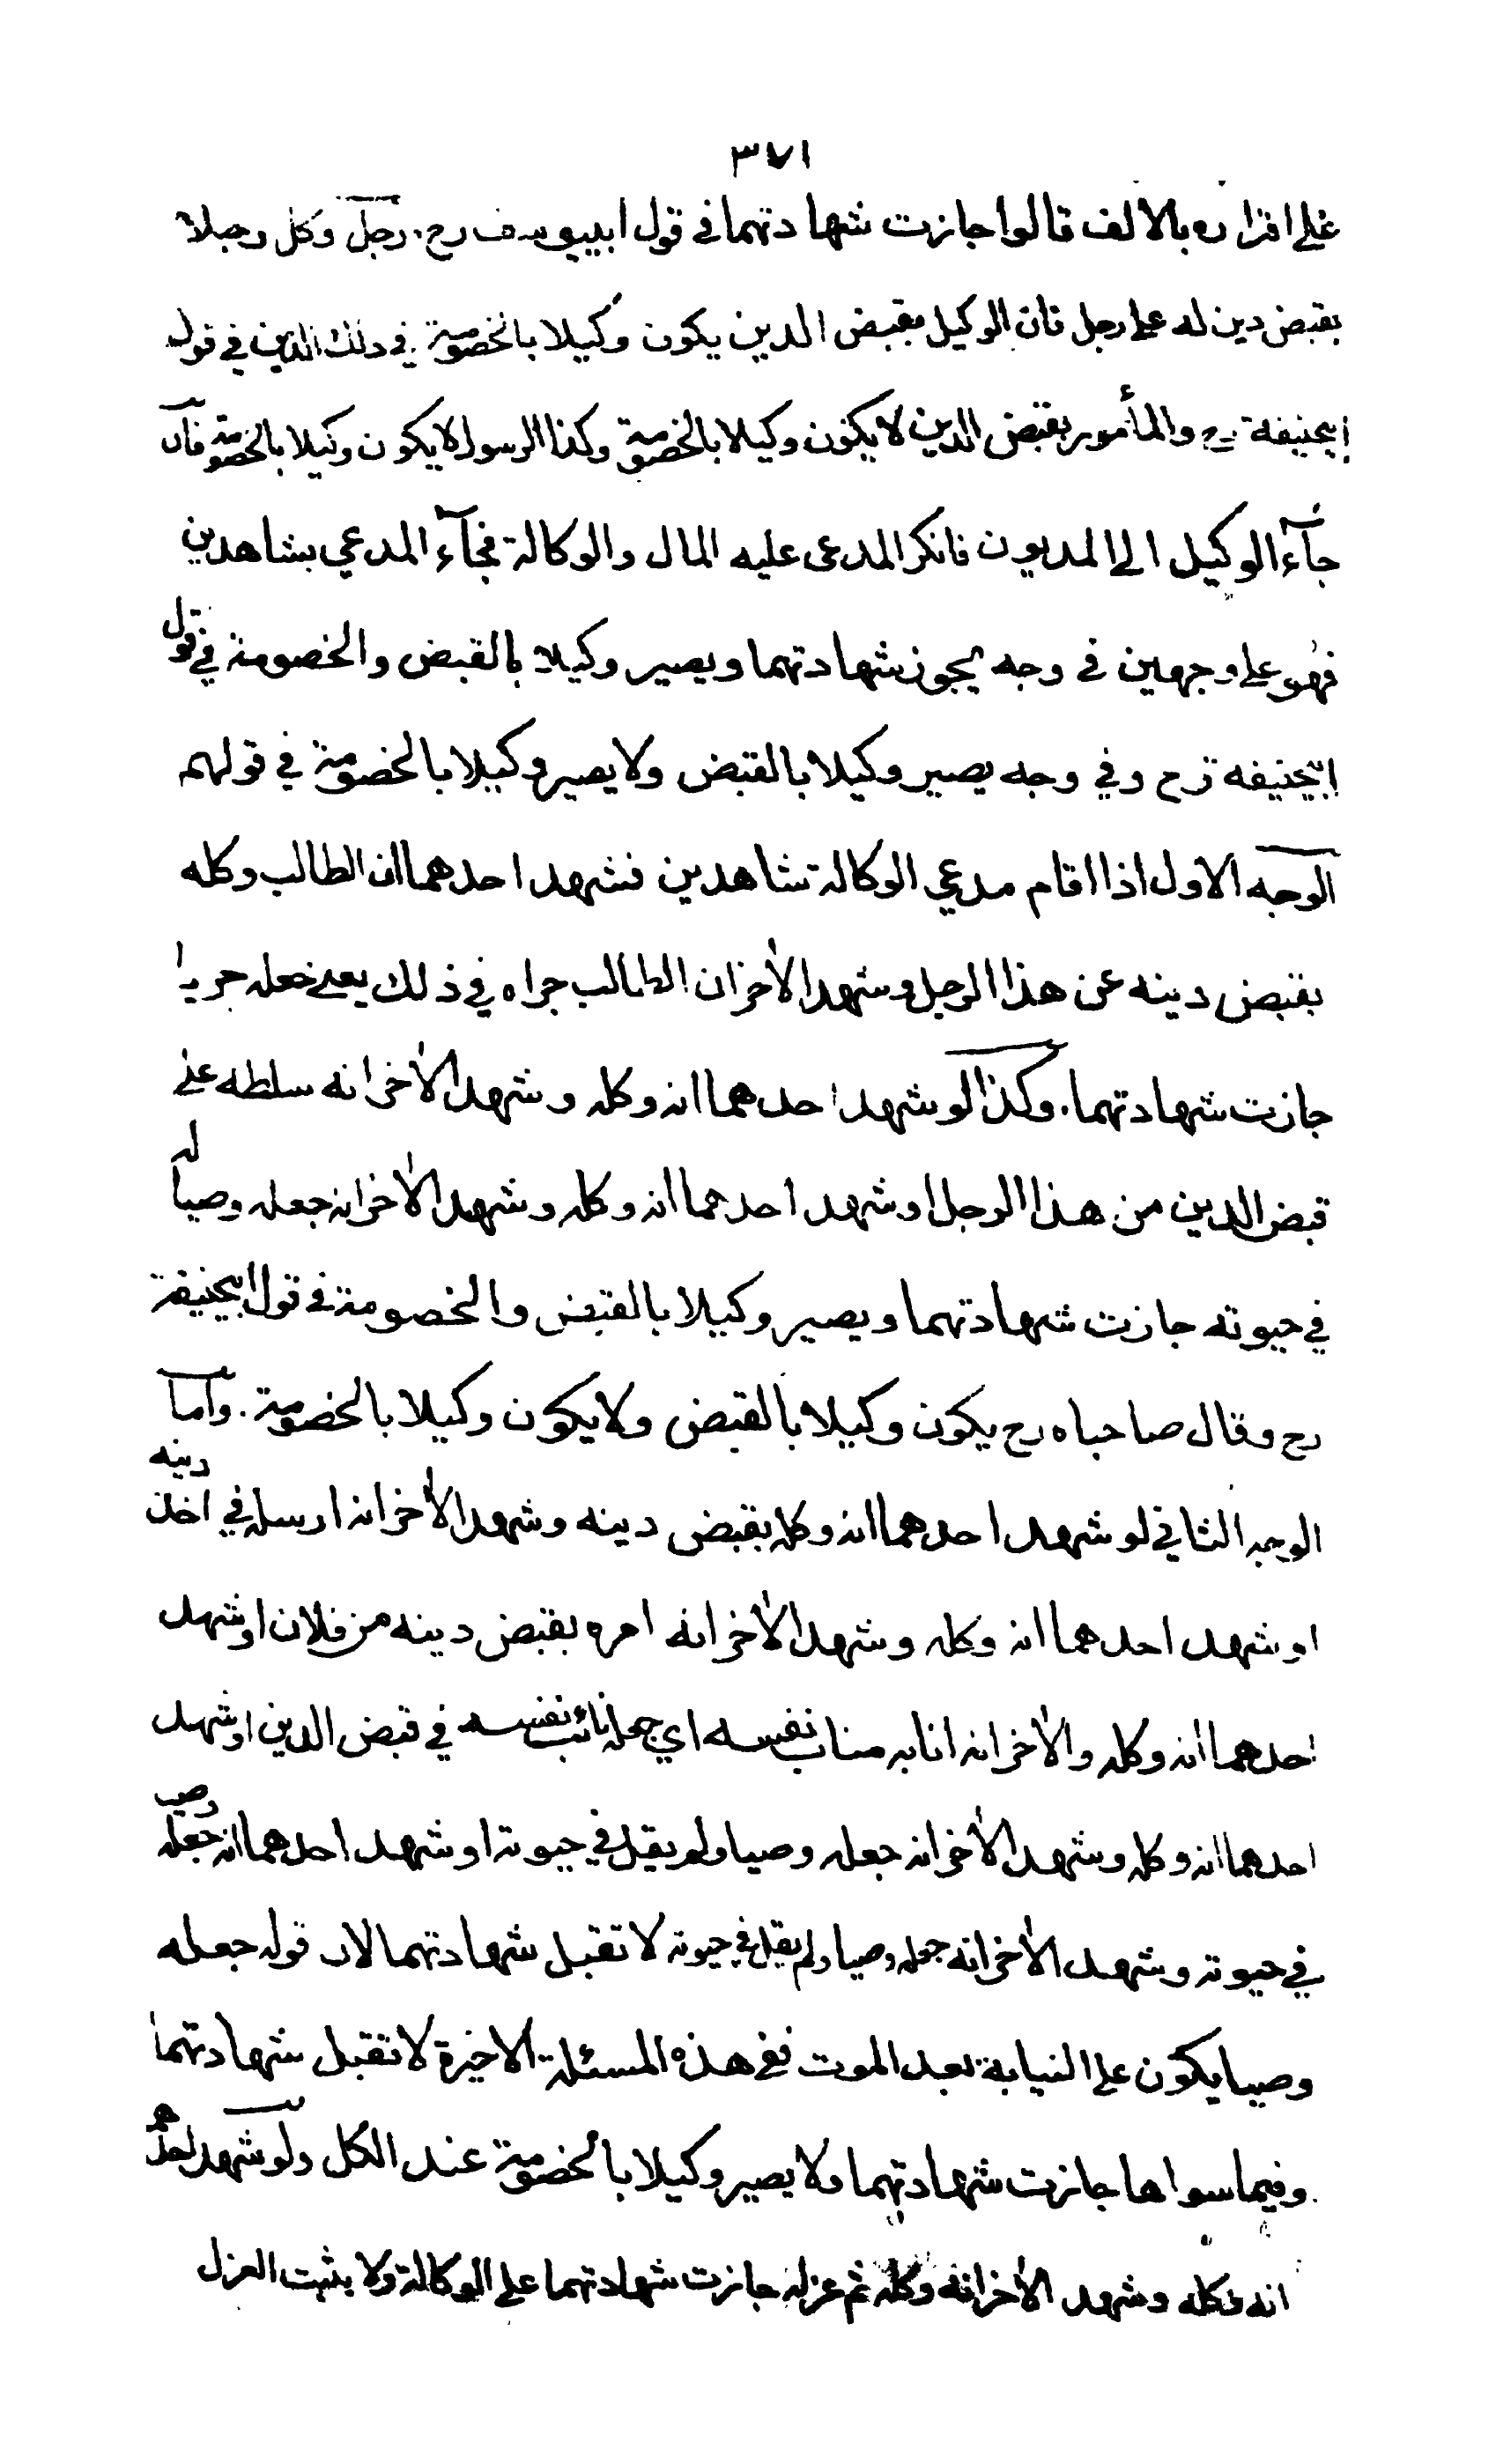 ٣٧١
على اقراره بالالف قالوا جازت شهادتهما في قول ابييوسف رح. رجل وكل رجلا
بقبض دين له على رجل فان الوكيل بقبض الدين يكون وكيلا بالخصومة في ذلك الدين في قول
ابيحنيفة رح والمأمور بقبض الدين لا يكون وكيلا بالخصومة وكذا الرسول لا يكون وكيلا بالخصومة فان
جآء الوكيل الى المديون فانكر المدعى عليه المال والوكالة فجآء المدعي بشاهدين
فهو على وجهين في وجه يجوز شهادتهما ويصير وكيلا بالقبض والخصومة في قول
ابيحنيفه رح وفي وجه يصير وكيلا بالقبض ولا يصير وكيلا بالخصومة في قولهم
الوجه الاول اذا اقام مدعي الوكالة شاهدين فشهد احدهما ان الطالب وكله
بقبض دينه عن هذا الرجل وشهد الأخر ان الطالب جراه في ذلك يعني جعله جريا
جازت شهادتهما. وكذا لو شهد احدهما انه وكله وشهد الأخر انه سلطه على
قبض الدين من هذا الرجل او شهد احدهما انه وكله وشهد الأخر انه جعله وصيا له
في حيوته جازت شهادتهما ويصير وكيلا بالقبض والخصومة في قول ابيحنيفة
رح وقال صاحباه رح يكون وكيلا بالقبض ولا يكون وكيلا بالخصومة. واما
الوجه الثاني لو شهد احدهما انه وكله بقبض دينه وشهد الأخر انه ارسله في اخذ دينه
او شهد احدهما انه وكله وشهد الأخر انه امره بقبض دينه من فلان او شهد
احدهما انه وكله والأخر انه انابه مناب نفسه اي جعله نائب نفسه في قبض الدين او شهد
احدهما انه وكله وشهد الأخر انه جعله وصيا ولم يقل في حيوته او شهد احدهما انه جعله وصيا
في حيوته وشهد الأخر انه جعله وصيا ولم يقل في حيوته لا تقبل شهادتهما لان قوله جعله
وصيا يكون على النيابة بعد الموت ففي هذه المسئلة الاخيرة لا تقبل شهادتهما
وفيما سواها جازت شهادتهما ولا يصير وكيلا بالخصومة عند الكل ولو شهد احدهما
انه وكله وشهد الأخر انه وكله ثم عزله جازت شهادتهما على الوكالة ولا يثبت العزل